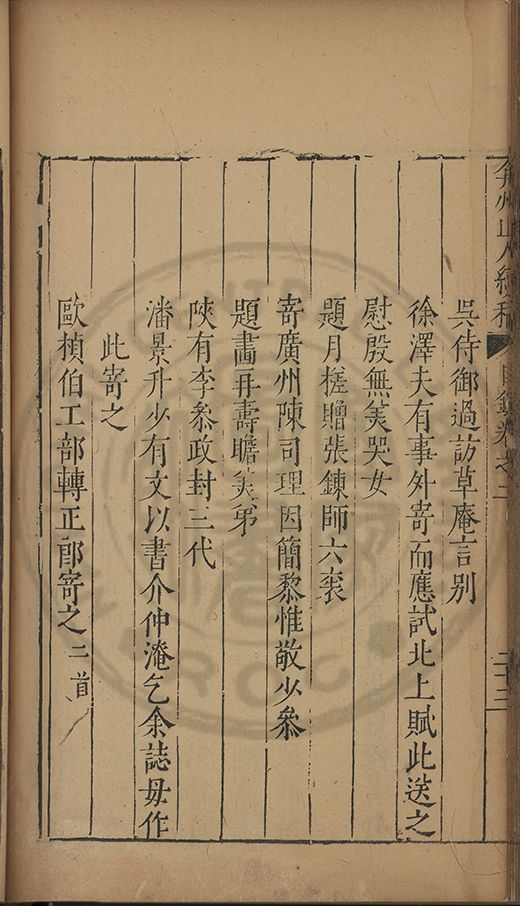 弇州山人續稿 目錄卷之二 二十三
吳侍御過訪草庵言别
徐澤夫有事外寄而應試北上賦此送之
慰殷無美哭女
題月槎贈張鍊師六袠
寄廣州陳司理因簡黎惟敬少叅
題畫再壽瞻美弟
陝有李叅政封三代
潘景升少有文以書介仲淹乞余誌毋作
此寄之
歐楨伯工部轉正郎寄之二首